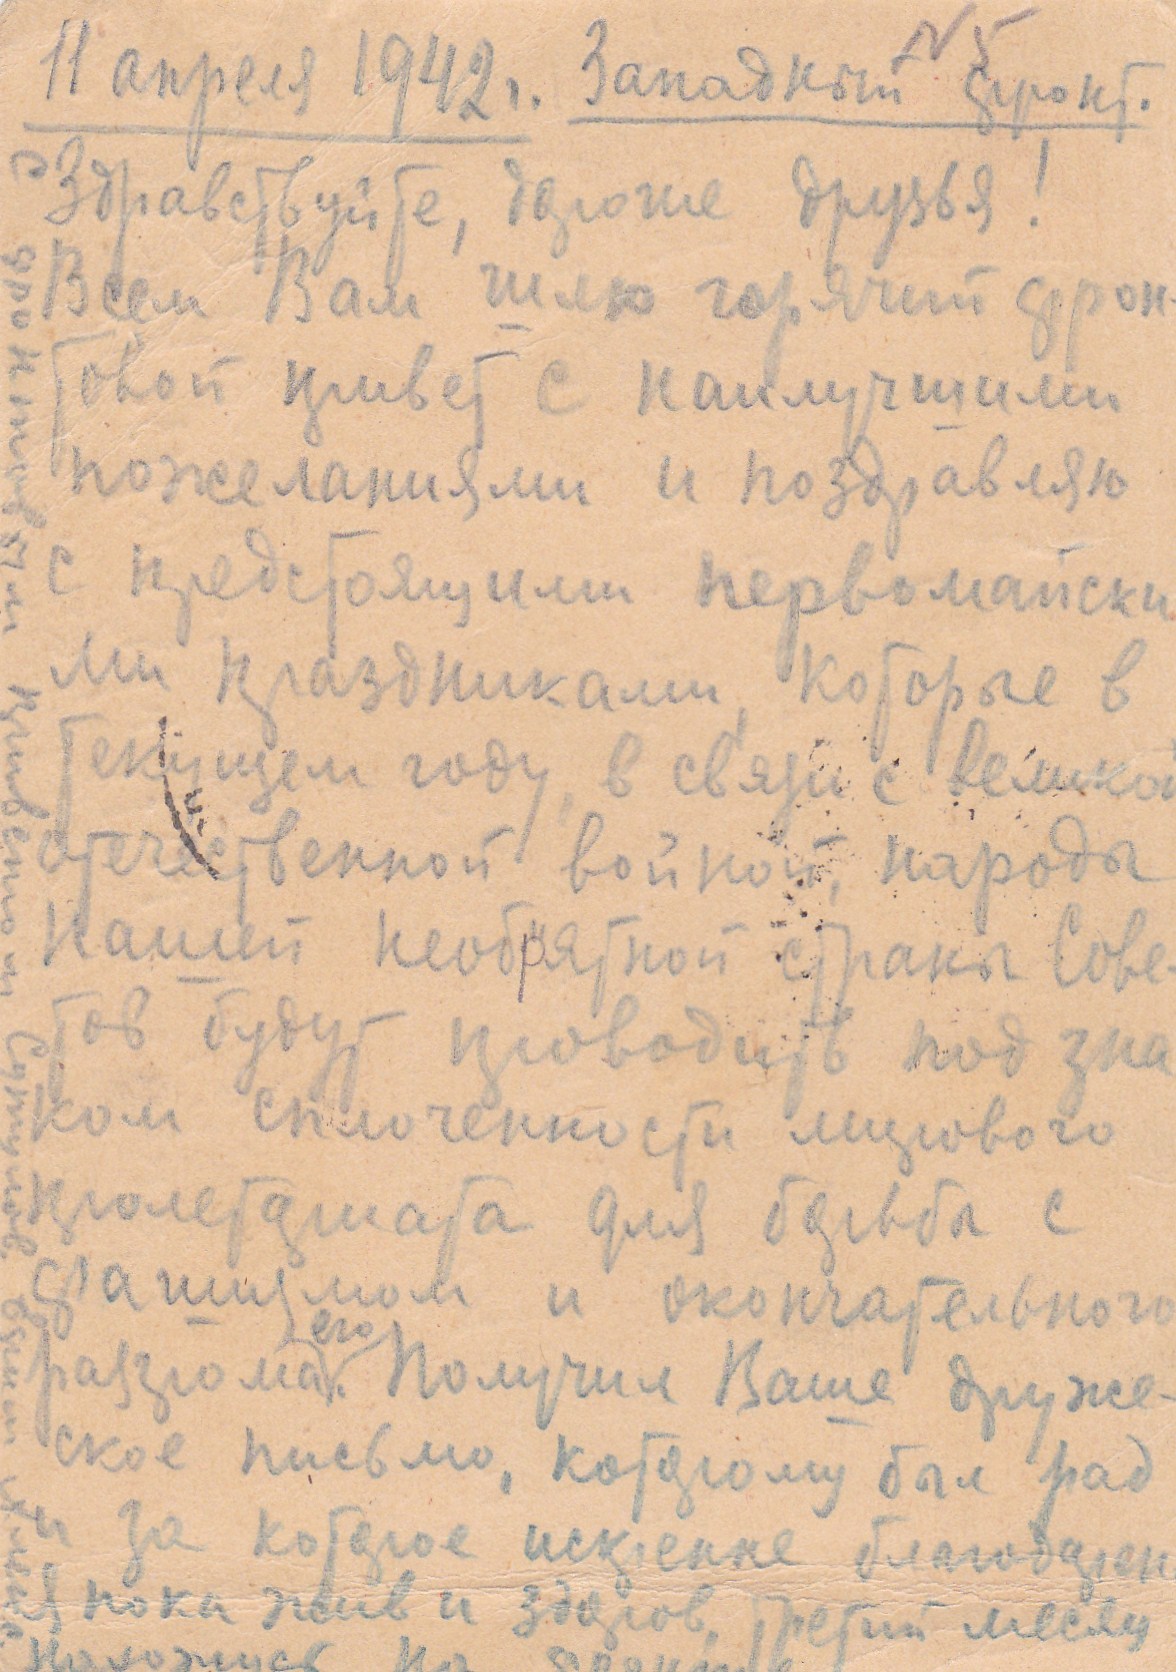 №5
11 апреля 1942 г. Западный фронт.
Здравствуйте, дорогие друзья!
Всем Вам шлю горячий фрон-
товой привет с наилучшими
пожеланиями и поздравляю
с предстоящими первомайски
ми праздниками, которые в
текущем году, в связи с великой
отечественной войной, народы
нашей необъятной страны Сове-
тов будут проводить под зна
ком сплоченности мирового
пролетариата для борьбы с
фашизмом и окончательного
его
разгрома. Получил Ваше друже-
ское письмо, которому был рад
и за которое искренне благодарен.
Я пока жив и здоров, третий месяц
нахожусь на фронте
С
фронтовым приветом